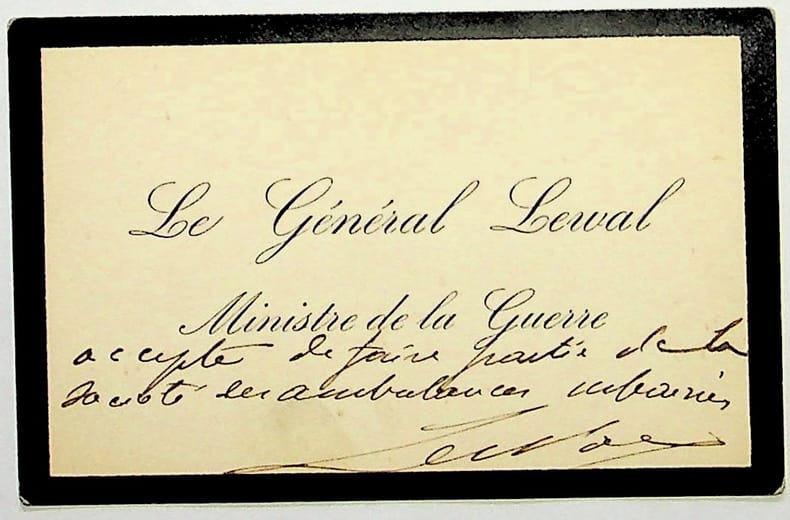 Le Général Lewal
Ministre de la Guerre
accepte de faire partie de la
Société des ambulances urbaines
Lewal